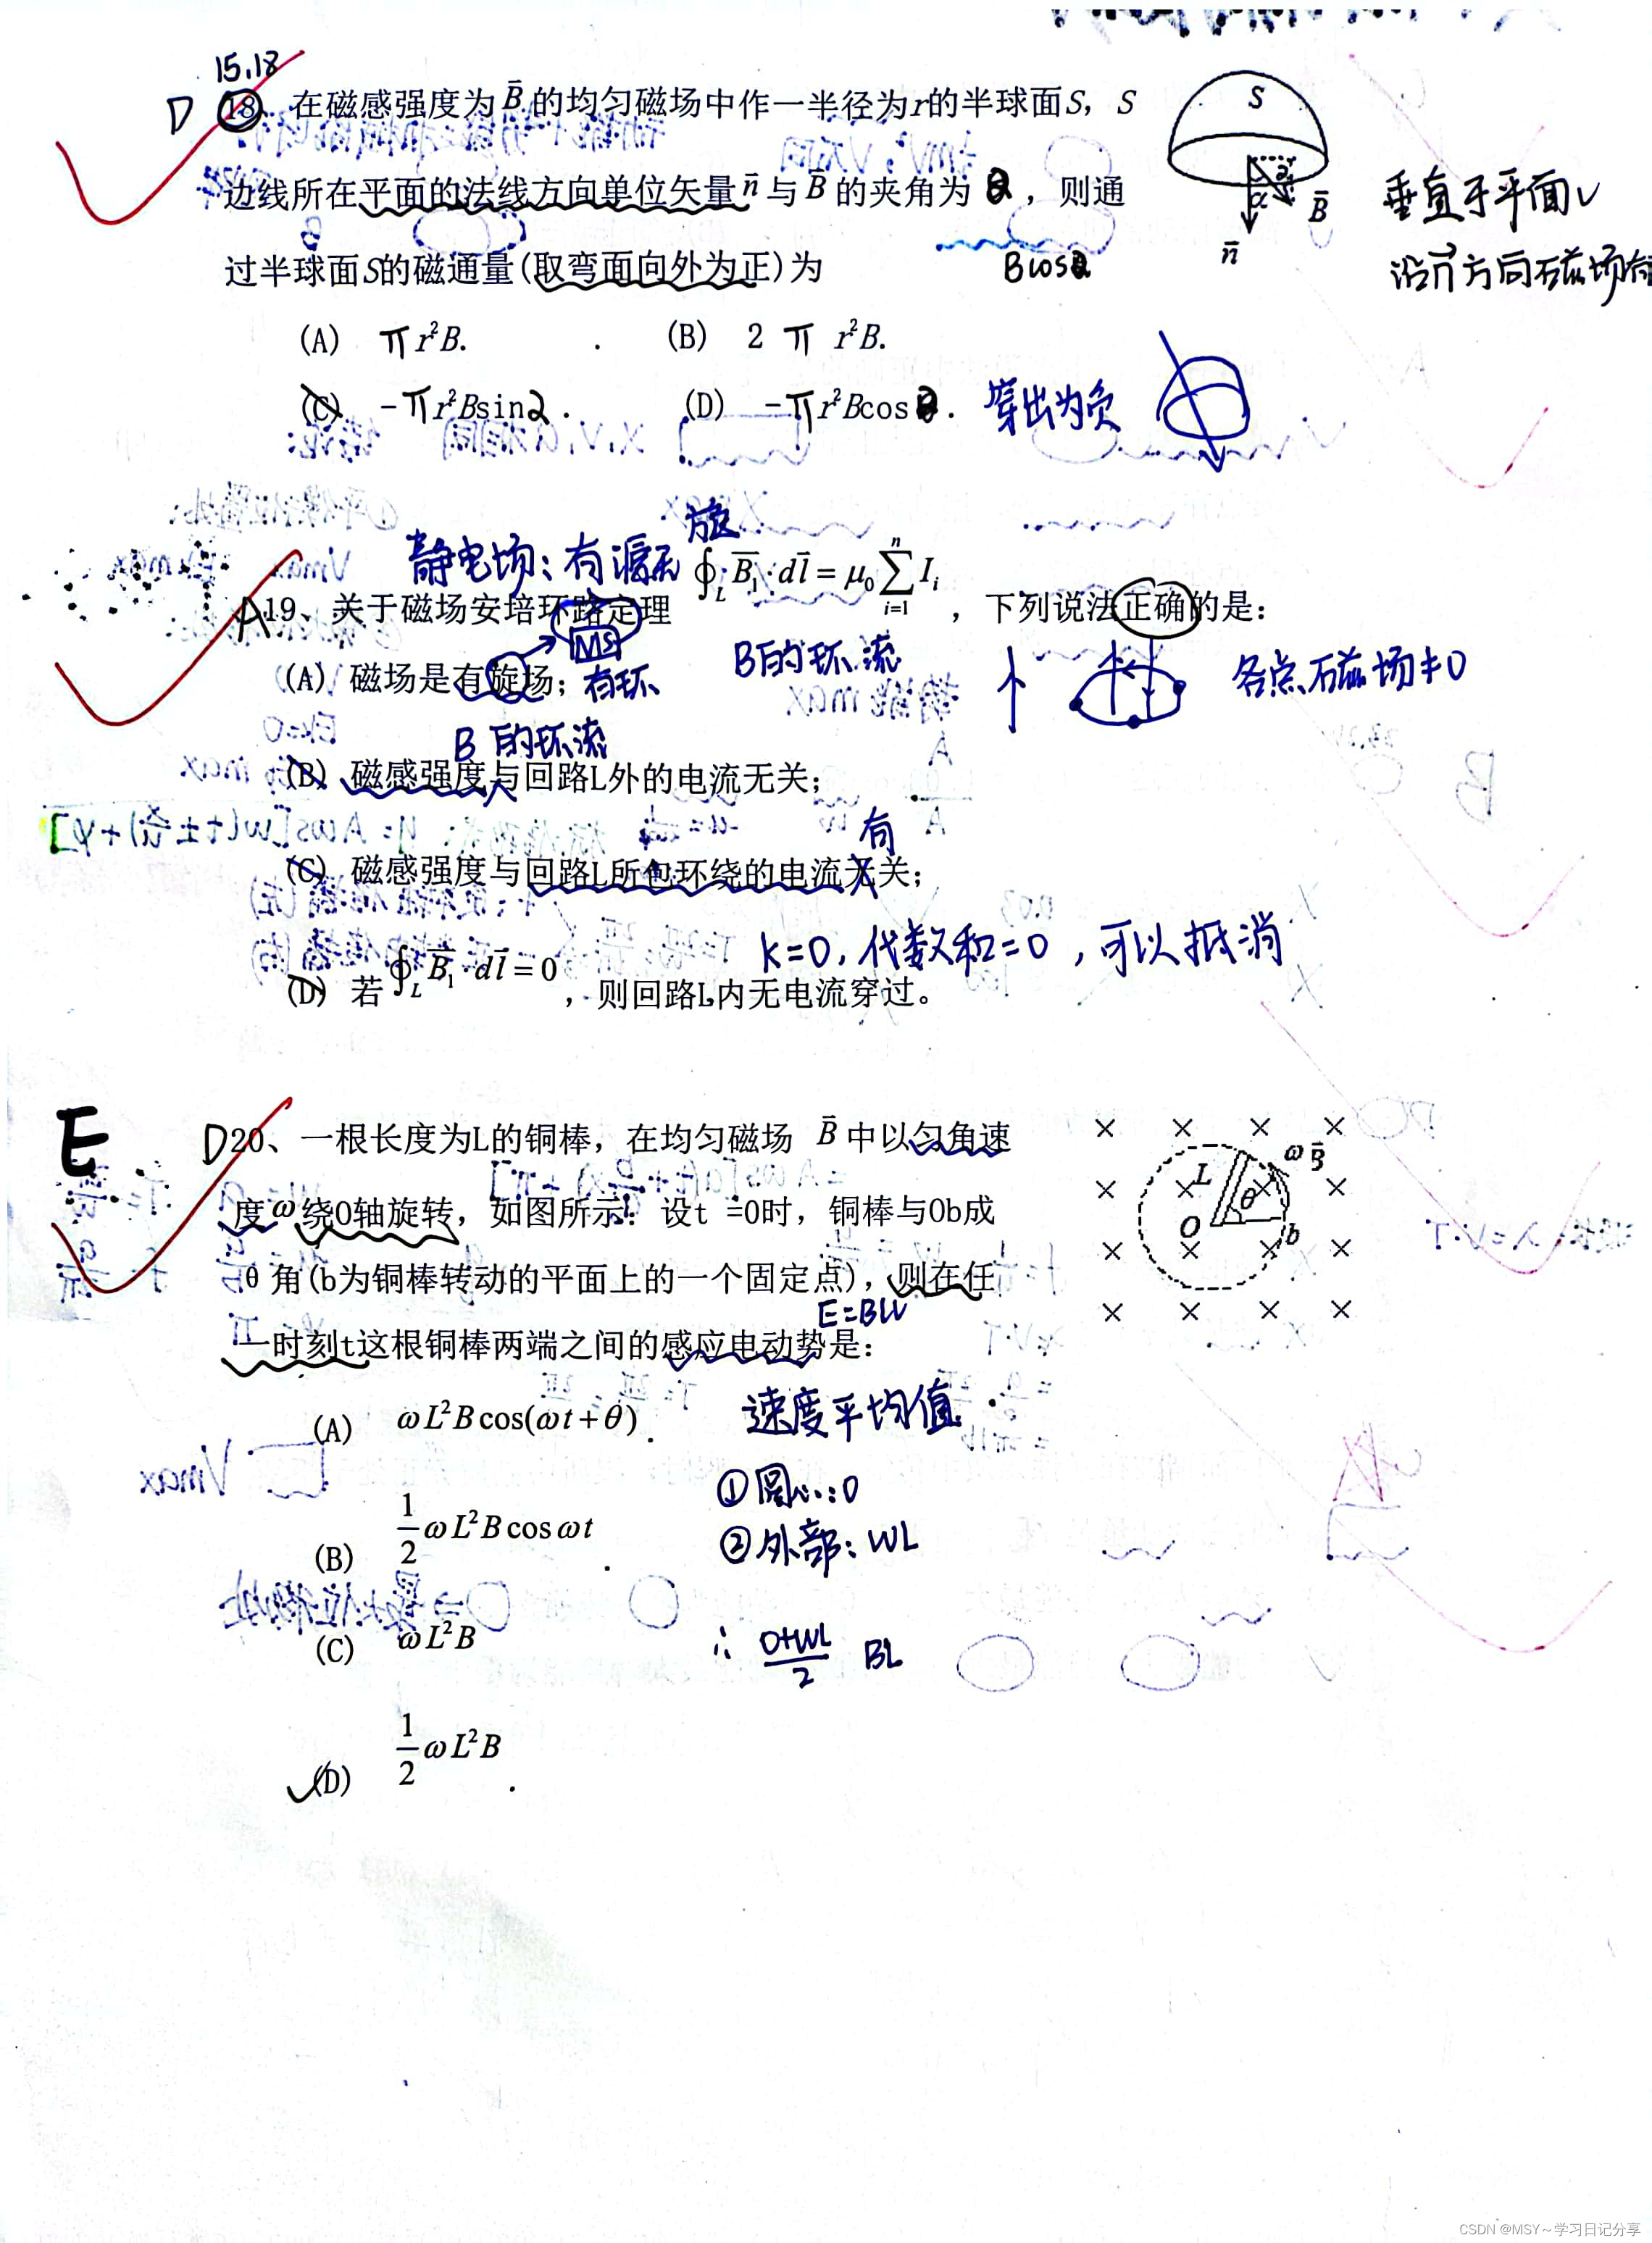 15.18
D 18、在磁感强度为B的均匀磁场中作一半径为r的半球面S，S
S
边线所在平面的法线方向单位矢量n与B的夹角为α，则通
α B
n
垂直于平面
过半球面S的磁通量(取弯面向外为正)为
Bcosα
沿n方向磁场有
(A) πr²B.
(B) 2πr²B.
(C) -πr²Bsinα.
(D) -πr²Bcosα.
穿出为负
静电场：有源无旋
A 19、关于磁场安培环路定理 ∮_L B₁·dl=μ₀∑_{i=1}^{n} I_i ，下列说法正确的是：
(A) 磁场是有旋场；有环
B的环流
各点磁场≠0
B的环流
(B) 磁感强度与回路L外的电流无关；
有
(C) 磁感强度与回路L所包环绕的电流无关；
k=0，代数和=0，可以抵消
(D) 若∮_L B₁·dl=0，则回路L内无电流穿过。
E
D 20、一根长度为L的铜棒，在均匀磁场 B 中以匀角速
度ω绕O轴旋转，如图所示．设t =0时，铜棒与Ob成
θ角(b为铜棒转动的平面上的一个固定点)，则在任
E=BLV
一时刻t这根铜棒两端之间的感应电动势是：
ω B
L θ
O b
(A) ωL²Bcos(ωt+θ).
速度平均值
①圆心：0
(B) ½ωL²Bcosωt.
②外部：WL
(C) ωL²B
∴ (0+WL)/2 BL
(D) ½ωL²B.
CSDN @MSY～学习日记分享